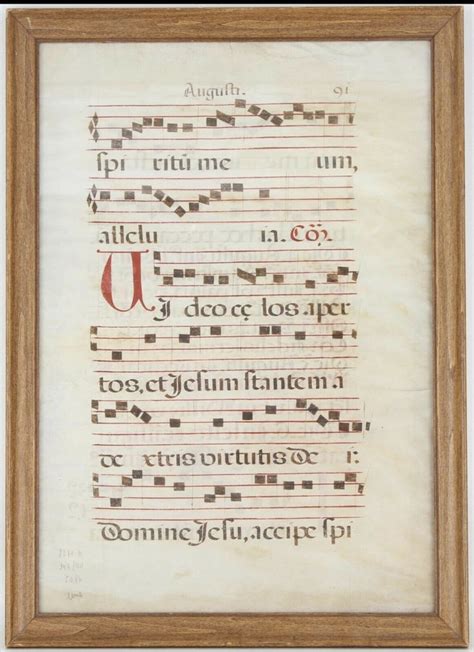 Augusti. 91
spi ritū me um,
allelu ia. Cō̃.
UI deo cę los aper
tos, et Jesum stantem a
de xtris virtutis De i:
Domine Jesu, accipe spi